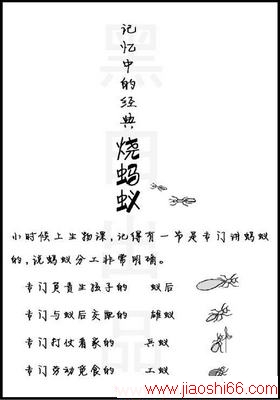 记忆中的经典
烧蚂蚁
小时候上生物课，记得有一节是专门讲蚂蚁
的，说蚂蚁分工非常明确。
专门负责生孩子的 蚁后
专门与蚁后交配的 雄蚁
专门打仗看家的 兵蚁
专门劳动觅食的 工蚁
www.jiaoshi66.com